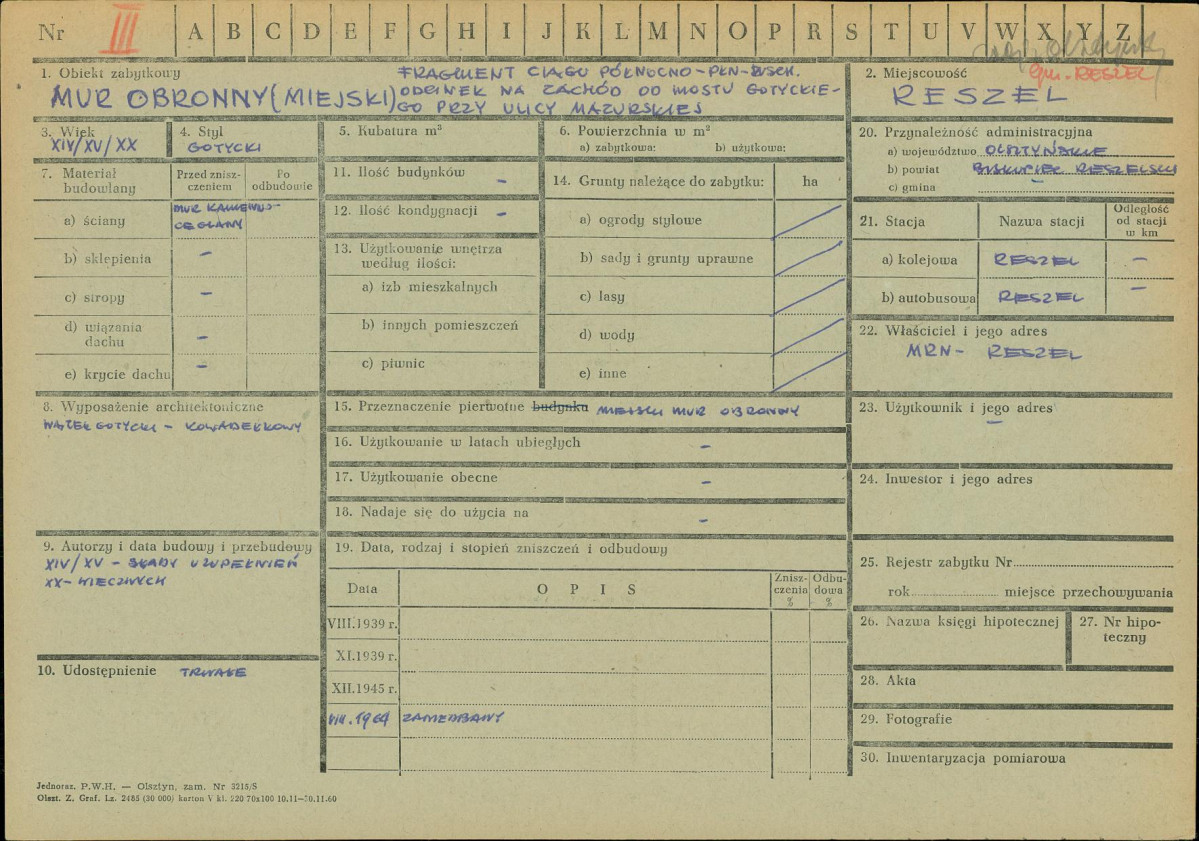 Nr III A B C D E F G H I J K L M N O P R S T U V W X Y Z
gm. RESZEL
1. Obiekt zabytkowy
MUR OBRONNY (MIEJSKI)
FRAGMENT CIĄGU PÓŁNOCNO-PŁN-WSCH.
ODCINEK NA ZACHÓD OD MOSTU GOTYCKIE-
GO PRZY ULICY MAZURSKIEJ
2. Miejscowość
RESZEL
3. Wiek
XIV/XV/XX
4. Styl
GOTYCKI
5. Kubatura m³
6. Powierzchnia w m²
a) zabytkowa: b) użytkowa:
20. Przynależność administracyjna
a) województwo OLSZTYŃSKIE
b) powiat BISKUPIEC RESZELSKI
c) gmina –
7. Materiał budowlany
Przed znisz-
czeniem
Po
odbudowie
a) ściany MUR KAMIENNO-
CEGLANY
b) sklepienia –
c) stropy –
d) wiązania
dachu –
e) krycie dachu –
11. Ilość budynków –
12. Ilość kondygnacji –
13. Użytkowanie wnętrza
według ilości:
a) izb mieszkalnych
b) innych pomieszczeń
c) piwnic
14. Grunty należące do zabytku: ha
a) ogrody stylowe
b) sady i grunty uprawne
c) lasy
d) wody
e) inne
21. Stacja Nazwa stacji
Odległość
od stacji
w km
a) kolejowa RESZEL –
b) autobusowa RESZEL –
22. Właściciel i jego adres
MRN - RESZEL
8. Wyposażenie architektoniczne
WĄTEK GOTYCKI - KOWADEŁKOWY
15. Przeznaczenie pierwotne budynku MIEJSKI MUR OBRONNY
16. Użytkowanie w latach ubiegłych –
17. Użytkowanie obecne –
18. Nadaje się do użycia na –
23. Użytkownik i jego adres
–
24. Inwestor i jego adres
9. Autorzy i data budowy i przebudowy
XIV/XV - ŚLADY UZUPEŁNIEŃ
XX-WIECZNYCH
10. Udostępnienie TRWAŁE
19. Data, rodzaj i stopień zniszczeń i odbudowy
Data O P I S
Znisz-
czenia
%
Odbu-
dowa
%
VIII.1939 r.
XI.1939 r.
XII.1945 r.
VIII.1964 ZANIEDBANY
25. Rejestr zabytku Nr
rok miejsce przechowywania
26. Nazwa księgi hipotecznej
27. Nr hipo-
teczny
28. Akta
29. Fotografie
30. Inwentaryzacja pomiarowa
Jednoraz. P.W.H. — Olsztyn, zam. Nr 3215/S
Olszt. Z. Graf. Lz. 2485 (30 000) karton V kl. 220 70x100 10.11—30.11.60